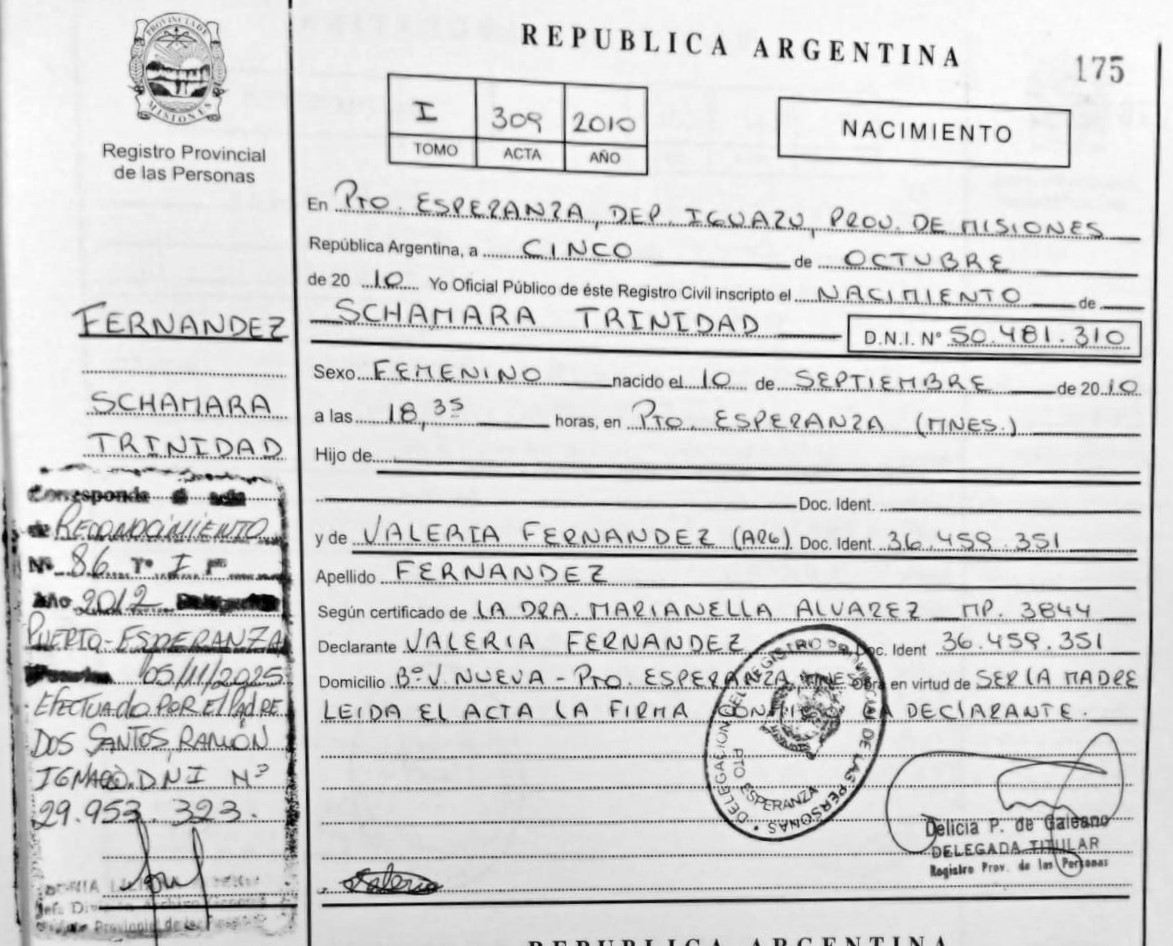 PROVINCIA DE MISIONES
Registro Provincial
de las Personas
REPUBLICA ARGENTINA
175
I 309 2010
TOMO ACTA AÑO
NACIMIENTO
En PTO. ESPERANZA, DEP. IGUAZU, PROV. DE MISIONES
República Argentina, a CINCO de OCTUBRE
de 20 10 Yo Oficial Público de éste Registro Civil inscripto el NACIMIENTO de
SCHAMARA TRINIDAD D.N.I. Nº 50.481.310
Sexo FEMENINO nacido el 10 de SEPTIEMBRE de 2010
a las 18,35 horas, en PTO. ESPERANZA (MNES.)
Hijo de
Doc. Ident.
y de VALERIA FERNANDEZ (ARG) Doc. Ident. 36.459.351
Apellido FERNANDEZ
Según certificado de LA DRA. MARIANELLA ALVAREZ MP. 3844
Declarante VALERIA FERNANDEZ Doc. Ident 36.459.351
Domicilio Bº V. NUEVA - PTO. ESPERANZA MNES Obra en virtud de SER LA MADRE
LEIDA EL ACTA LA FIRMA CONMIGO LA DECLARANTE.
DELEGACION DEL REGISTRO PROVINCIAL DE LAS PERSONAS
PTO ESPERANZA
Delicia P. de Galeano
DELEGADA TITULAR
Registro Prov. de las Personas
Valeria
FERNANDEZ
SCHAMARA
TRINIDAD
Corresponde al acta
de RECONOCIMIENTO
Nº 86 Tº I Fº
Año 2012 Delegación
PUERTO-ESPERANZA
05/11/2025
EFECTUADO POR El PADRE
DOS SANTOS, RAMÓN
IGNACIO. D.N.I Nº
29.953.323.
Jefe
Provincial de las
REPUBLICA ARGENTINA